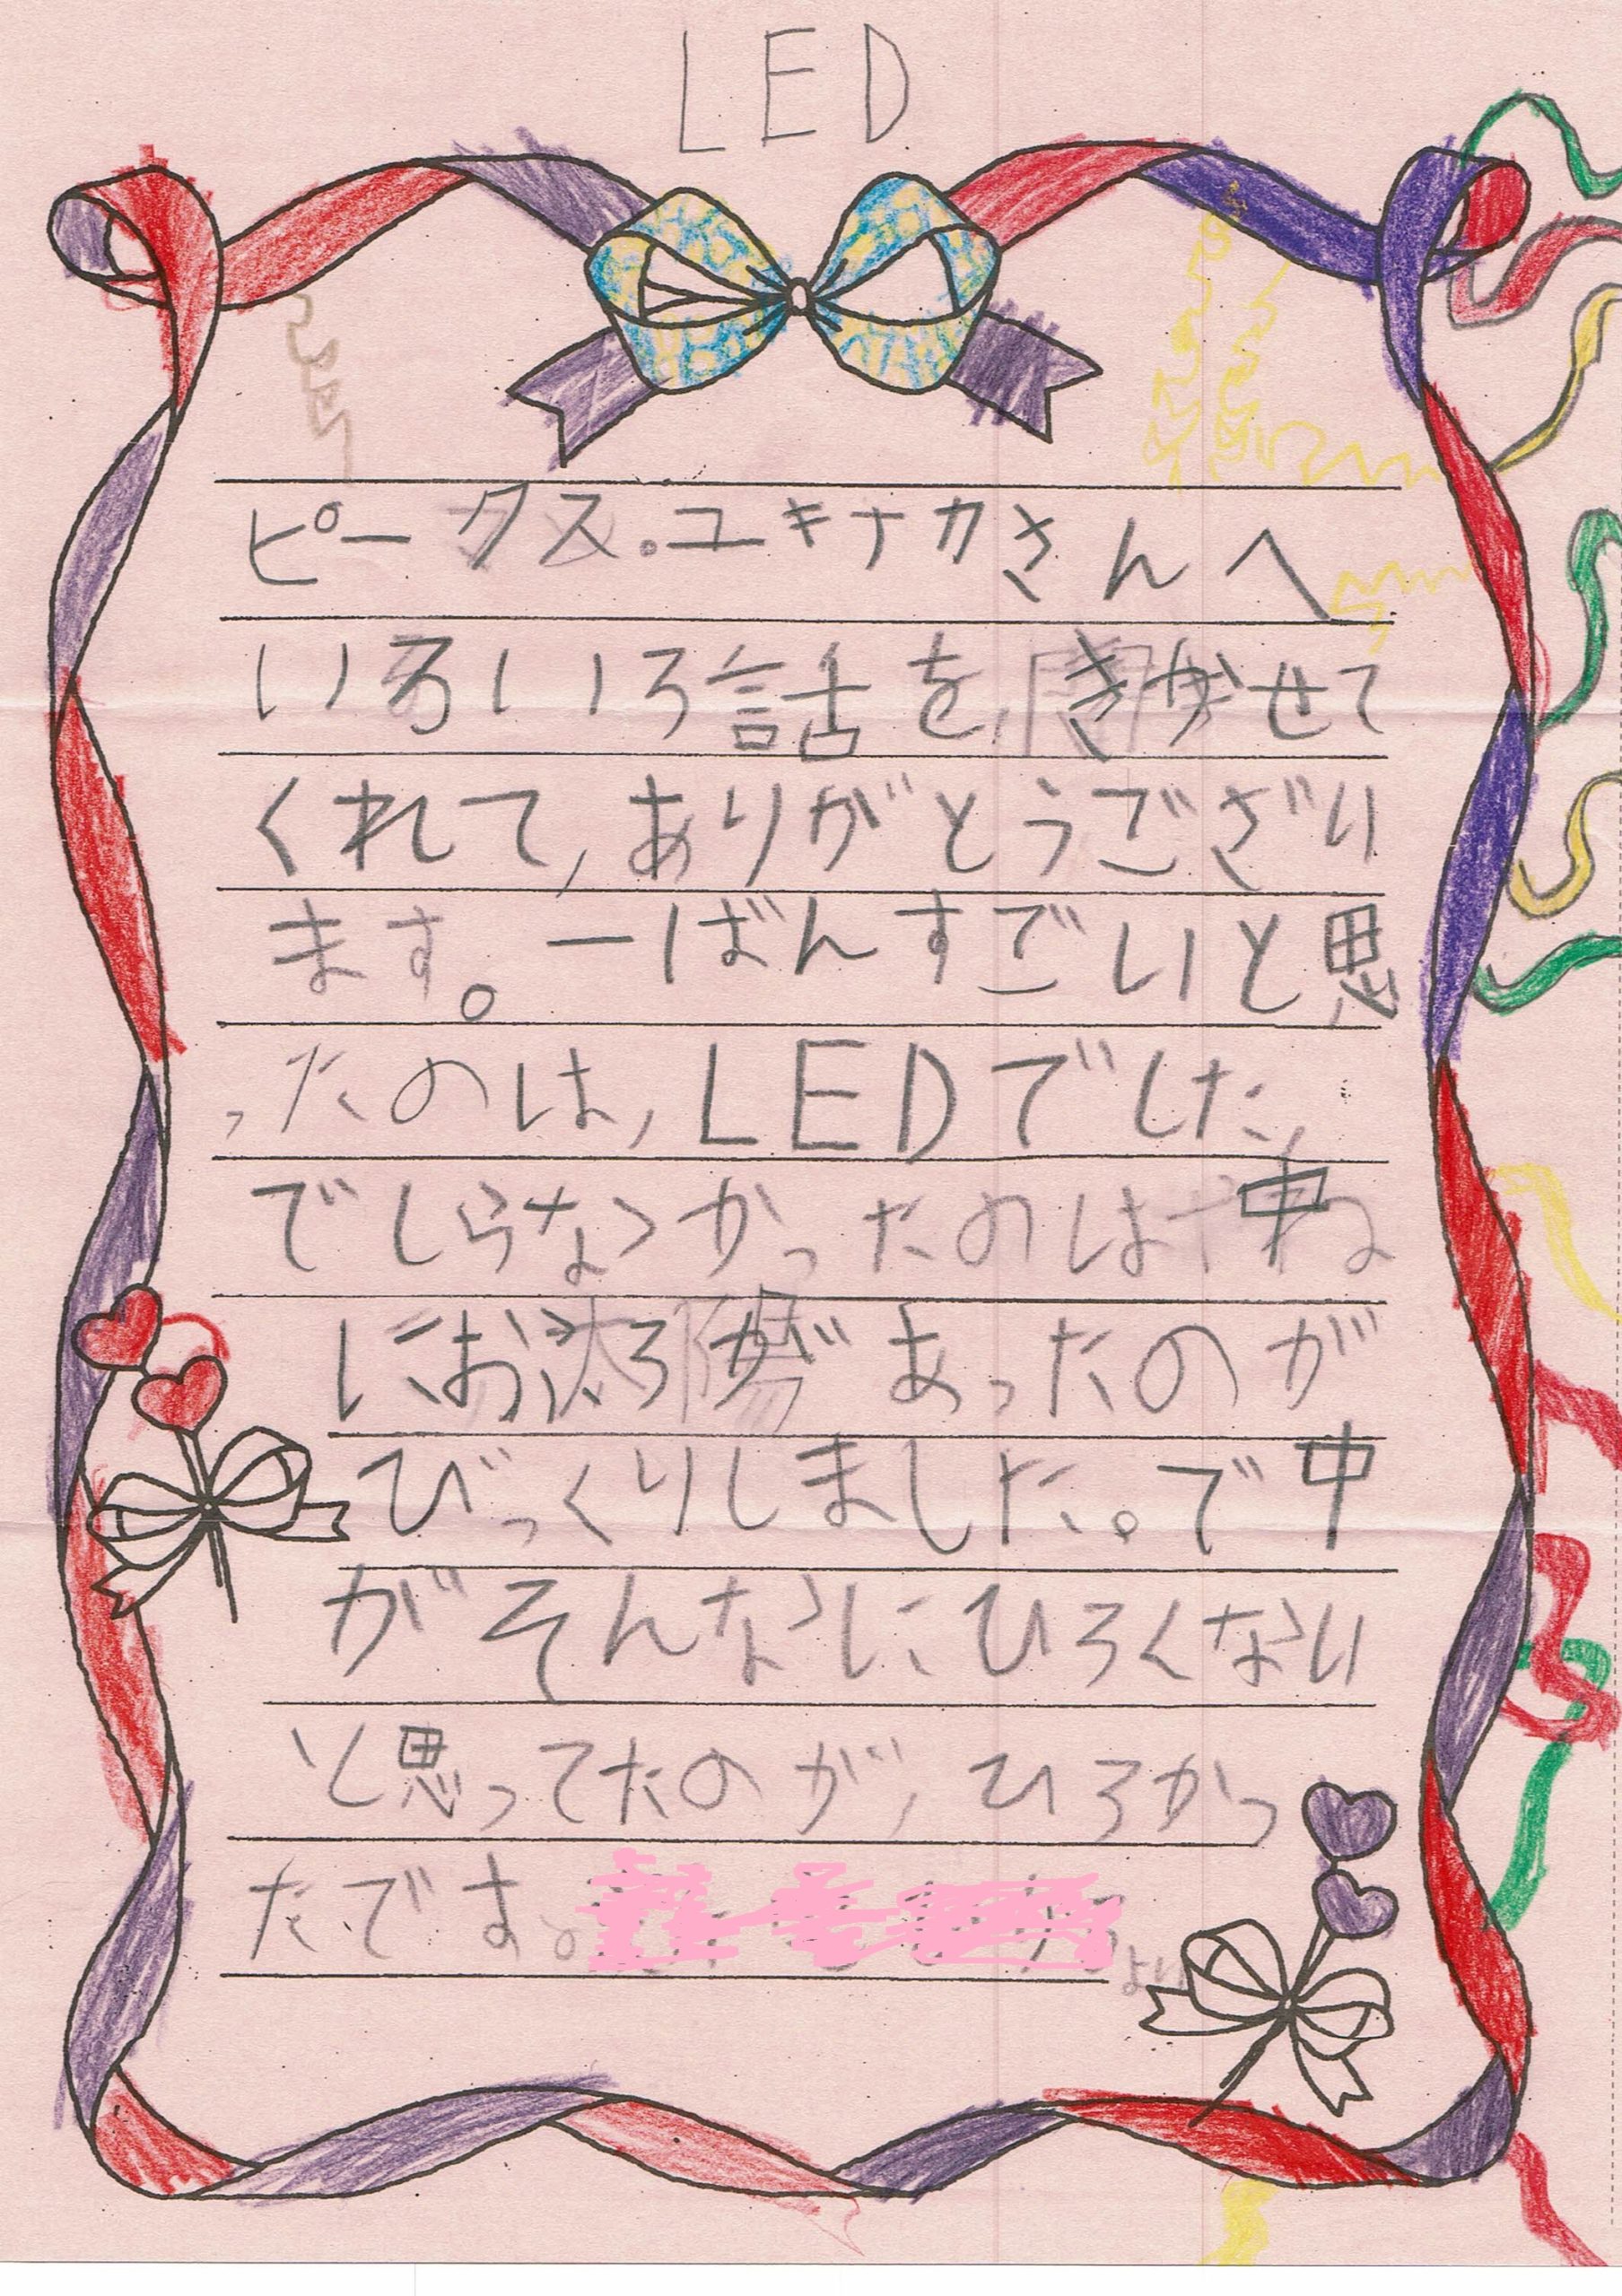 LED
ピークス。ユキナカさんへ
いろいろ話を、きかせて
くれて、ありがとうござい
ます。一ばんすごいと思
ったのは、LEDでした、
でしらなかったのは中
におふろがあったのが
びっくりしました。で中
がそんなにひろくない
と思ってたのが、ひろかっ
たです。
より